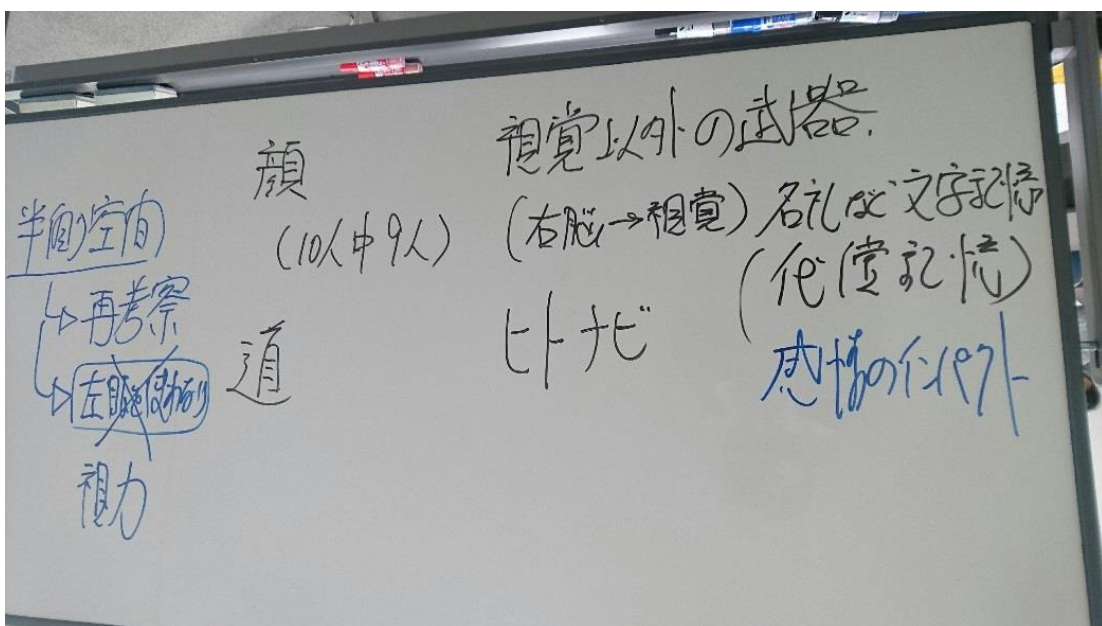 半側空間
再考察
左眼を使わない
視力
顔
(10人中9人)
道
視覚以外の武器.
(右脳→視覚)
ヒトナビ
名札など文字記憶
(代償記憶)
感情のインパクト